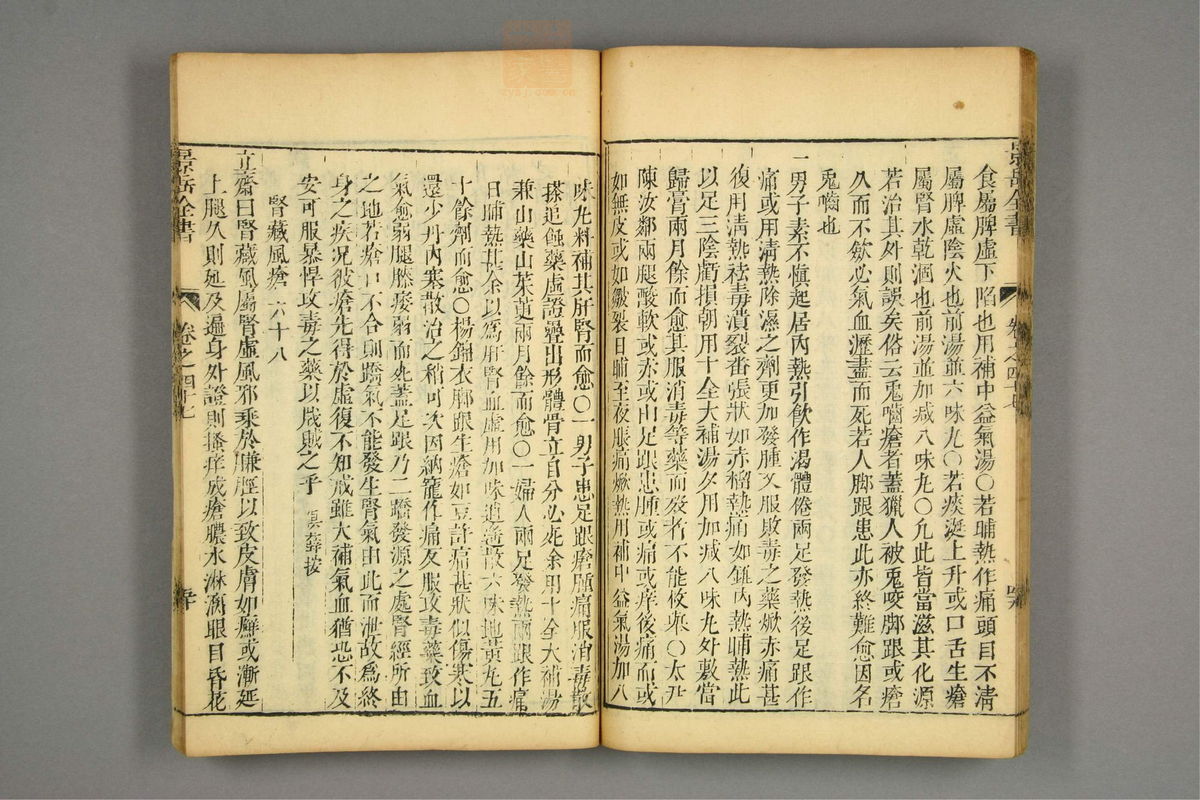 景岳全書 卷之四十七
食屬脾虛下陷也用補中益氣湯○若晡熱作痛頭目不清
屬脾虛陰火也前湯並六味丸○若痰涎上升或口舌生瘡
屬腎水乾涸也前湯並加减八味丸○凡此皆當滋其化源
若治其外則誤矣俗云兎嚙瘡者蓋獵人被兎咬脚跟或瘡
久而不斂必氣血瀝盡而死若人脚跟患此亦終難愈因名
兎嚙也
一男子素不愼起居內熱引飲作渴體倦兩足發熱後足跟作
痛或用淸熱除濕之劑更加發腫又服敗毒之藥焮赤痛甚
復用淸熱祛毒潰裂番張狀如赤榴熱痛如錐內熱晡熱此
以足三陰虧損朝用十全大補湯夕用加减八味丸外敷當
歸膏兩月餘而愈其服消毒等藥而歿者不能枚舉○太尹
陳汝鄰兩腿酸軟或赤或白足跟患腫或痛或痒後痛而或
如無皮或如皺裂日晡至夜脹痛焮熱用補中益氣湯加八
味丸料補其肝腎而愈○一男子患足跟瘡腫痛服消毒散
搽追蝕藥虛證疊出形體骨立自分必死余用十全大補湯
兼山藥山茱萸兩月餘而愈○一婦人兩足發熱兩跟作痛
日晡熱甚余以爲肝腎血虛用加味逍遙散六味地黃丸五
十餘劑而愈○楊錦衣脚跟生瘡如豆許痛甚狀似傷寒以
還少丹內塞散治之稍可次因納寵作痛反服攻毒藥致血
氣愈弱腿膝痿弱而死蓋足跟乃二蹻發源之處腎經所由
之地若瘡口不合則蹻氣不能發生腎氣由此而泄故爲終
身之疾况彼瘡先得於虛復不知戒雖大補氣血猶恐不及
安可服暴悍攻毒之藥以戕賊之乎
腎藏風瘡 六十八
立齋曰腎藏風屬腎虛風邪乘於臁脛以致皮膚如癬或漸延
上腿久則延及遍身外證則搔痒成瘡膿水淋漓眼目昏花
景岳全書 卷之四十七